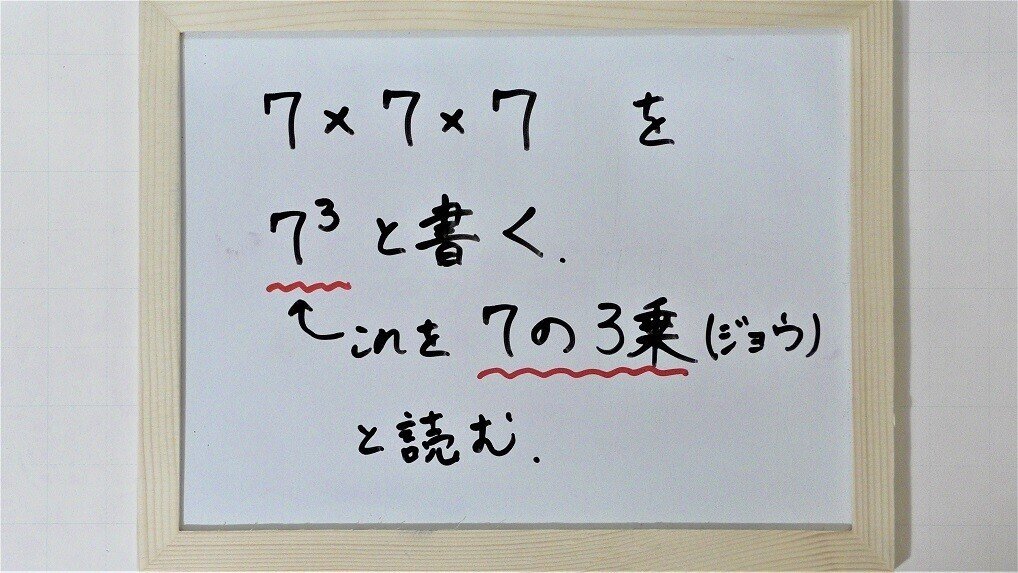 7×7×7 を
7³ と書く.
これを 7の3乗(ジョウ)
と読む.